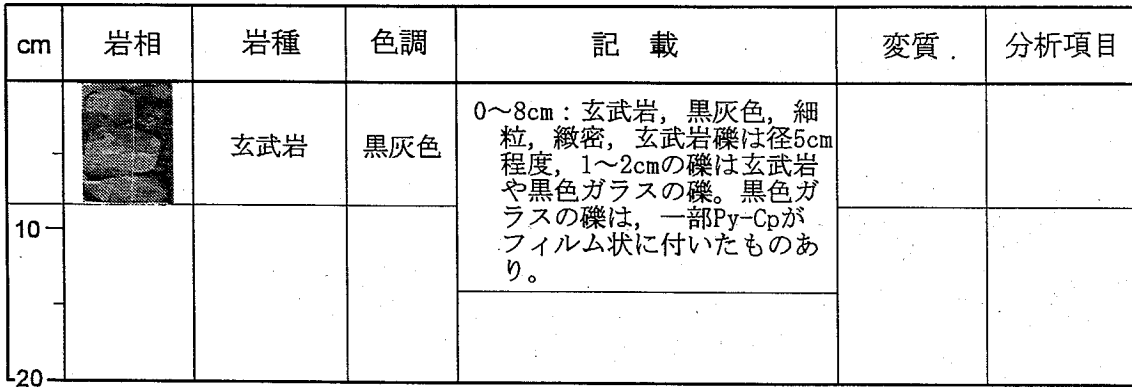 cm 岩相 岩種 色調 記 載 変質 分析項目
玄武岩 黒灰色
0～8cm：玄武岩, 黒灰色, 細
粒, 緻密, 玄武岩礫は径5cm
程度, 1～2cmの礫は玄武岩
や黒色ガラスの礫。黒色ガ
ラスの礫は, 一部Py-Cpが
フィルム状に付いたものあ
り。
10
20